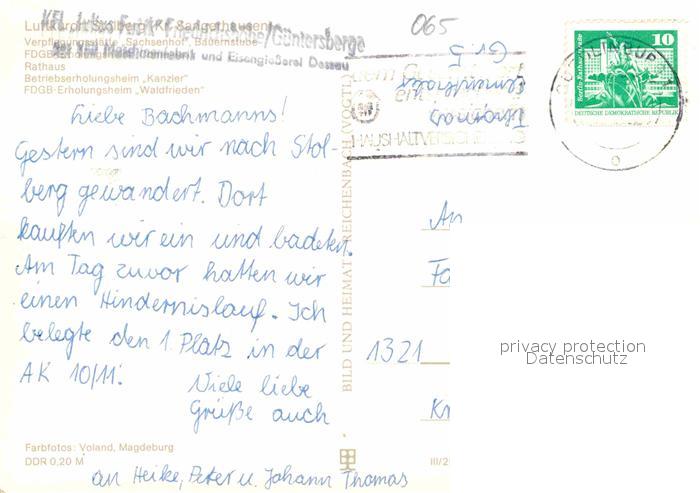 Luftkurort Stolberg (Kr. Sangerhausen)
Verpflegungsstätte „Sachsenhof“, Bauernstube
Rathaus
Betriebserholungsheim „Kanzler“
FDGB-Erholungsheim „Waldfrieden“
Friedrichshöhe/Güntersberge
der VEB Maschinenfabrik und Eisengießerei Dessau
065
HAUSHALTVERSICHE
10
Berlin Rathausstraße
DEUTSCHE DEMOKRATISCHE REPUBLIK
Liebe Bachmanns!
Gestern sind wir nach Stol-
berg gewandert. Dort
kauften wir ein und badeten.
Am Tag zuvor hatten wir
einen Hindernislauf. Ich
belegte den 1. Platz in der
AK 10/11.
Viele liebe
Grüße auch
an Heike, Peter u. Johann Thomas
BILD UND HEIMAT REICHENBACH (VOGTL
An
Fa
1321
Kr
privacy protection
Datenschutz
Farbfotos: Voland, Magdeburg
DDR 0,20 M
III/2